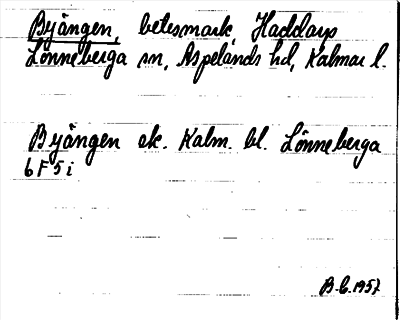 Byängen, betesmark, Haddarp
Lönneberga sn, Aspelands hd, Kalmar l.
Byängen ek. Kalm. bl. Lönneberga
6F5i
B.C. 1957